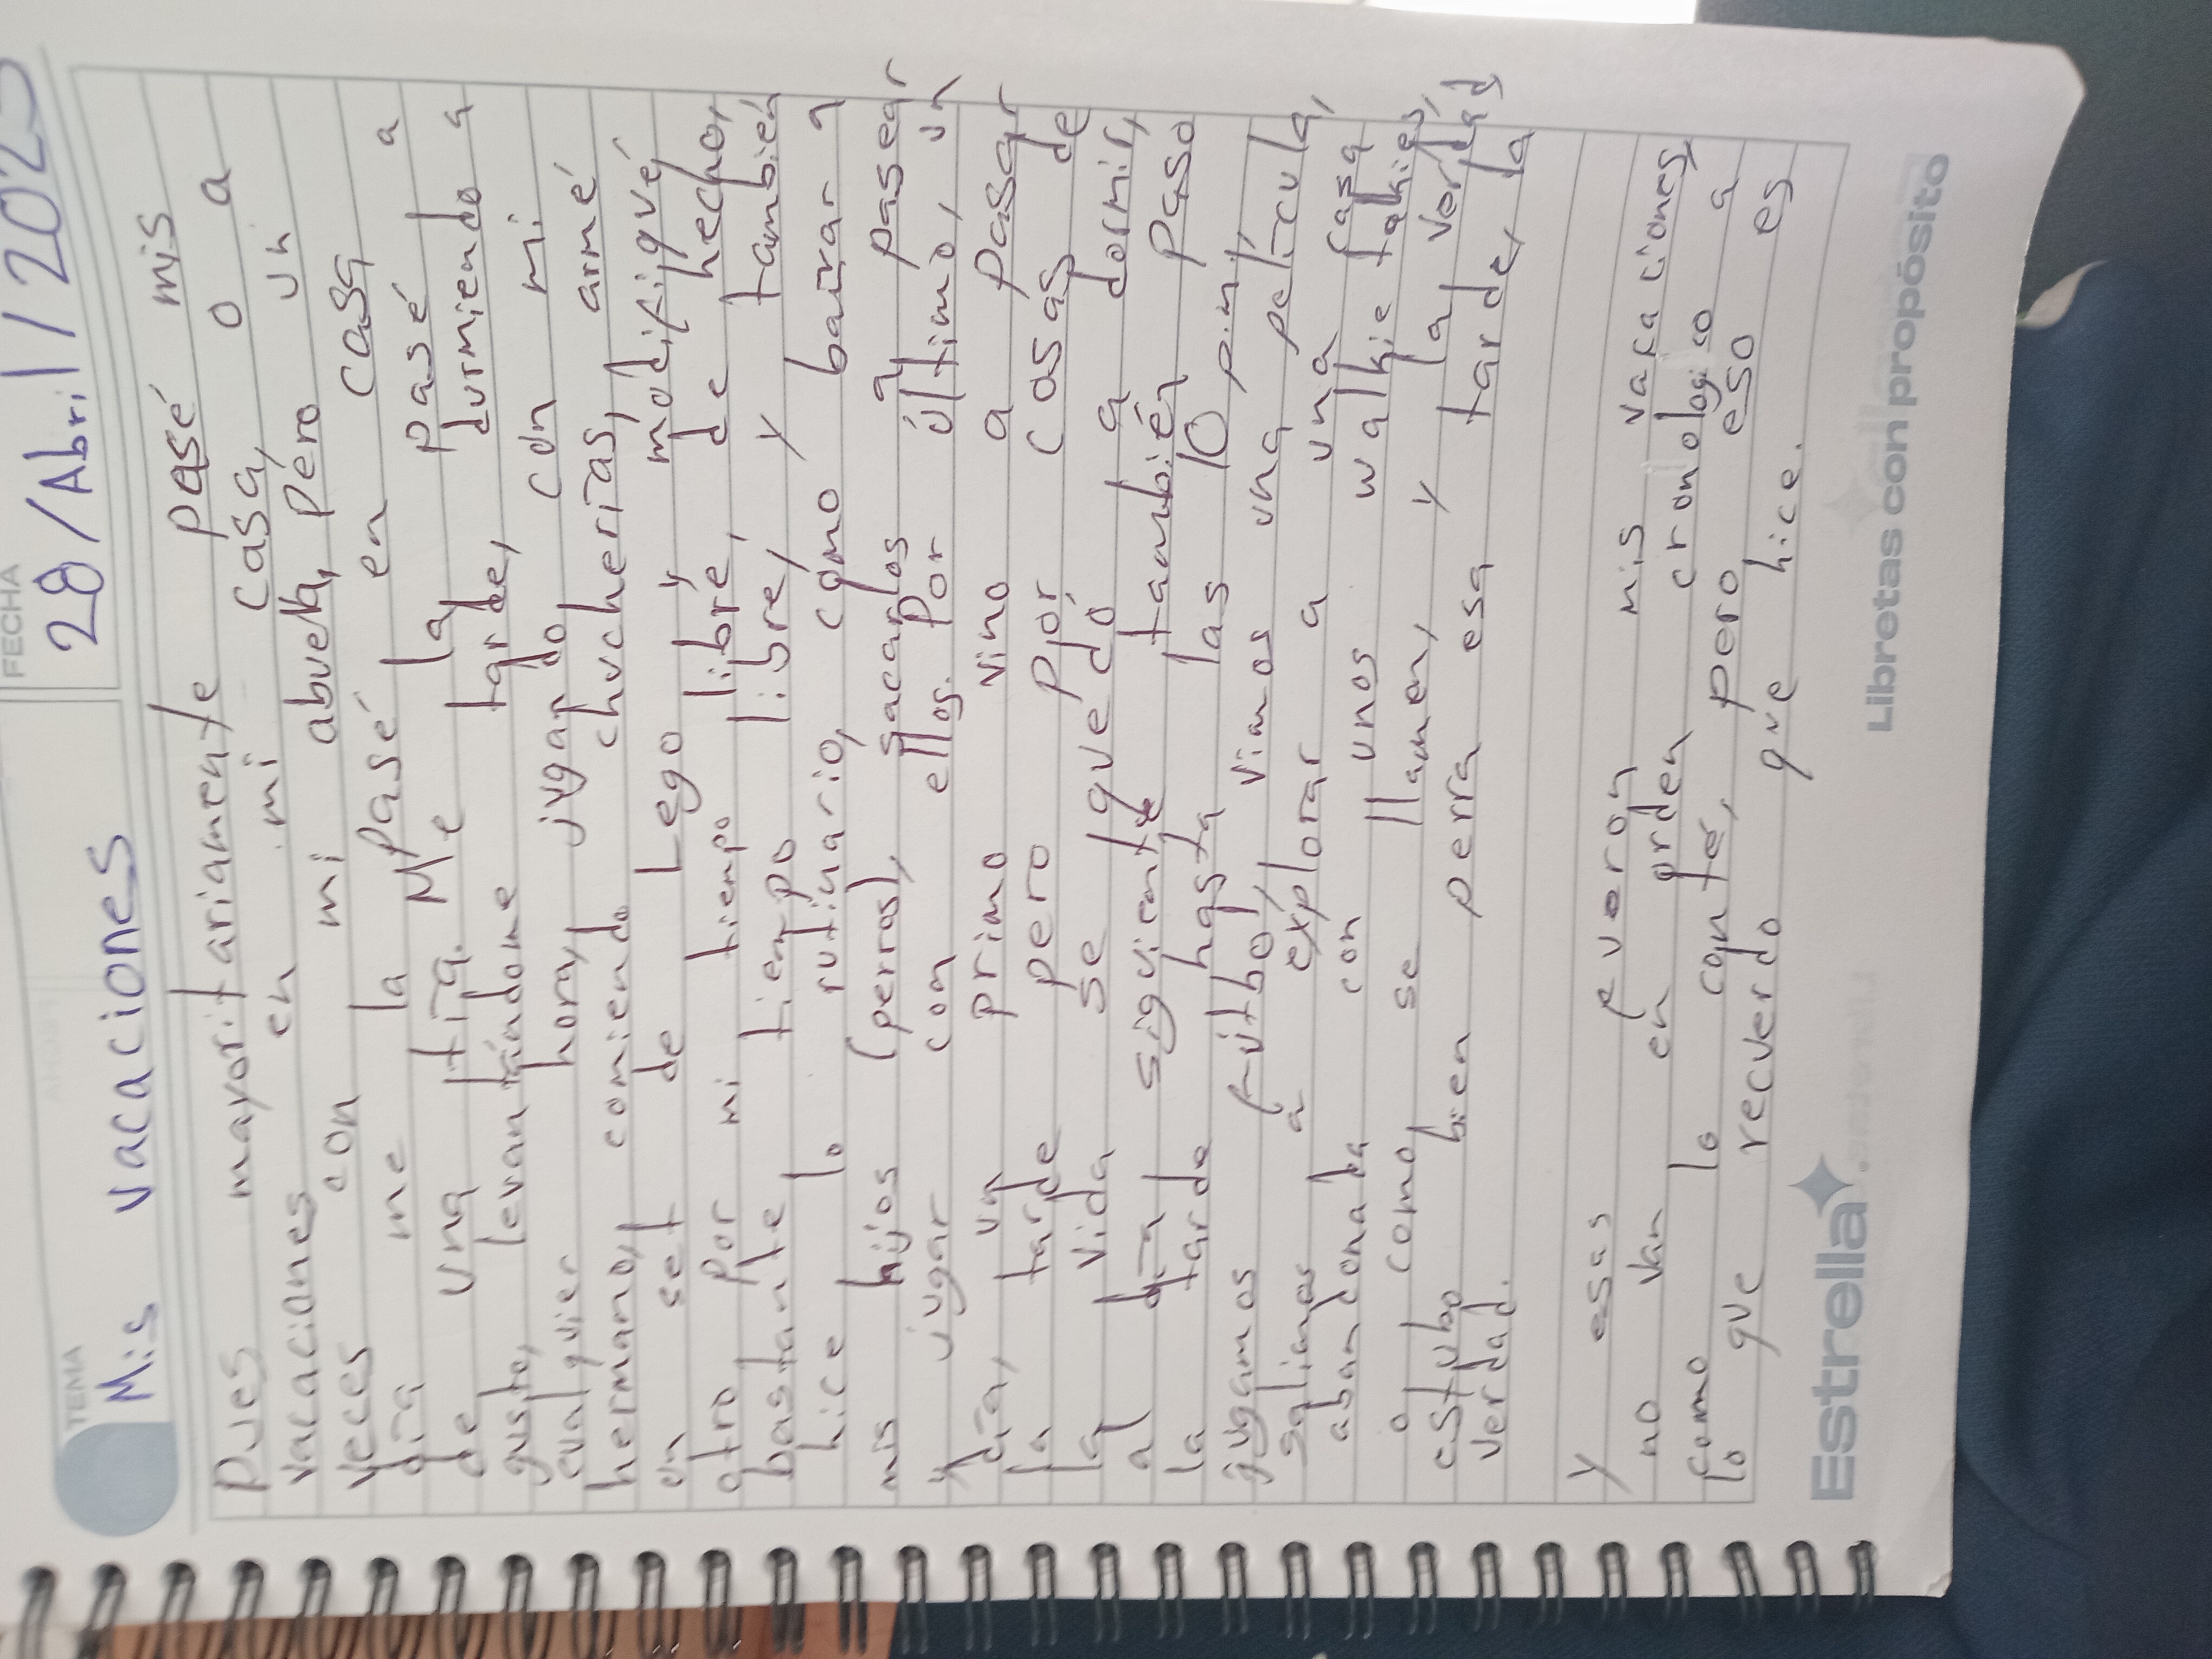 TEMA
Mis vacaciones
FECHA
28/Abril/2025
Pues mayoritariamente pasé mis
vacaciones en mi casa, o a
veces con mi abuela, pero un
día me la pasé en casa a
de una tía. Me la pasé a
gusto, levantándome tarde, durmiendo a
cualquier hora, jugando con mi
hermano, comiendo chucherías, armé
un set de Lego y modifiqué
otro por mi tiempo libre, de hecho,
bastante tiempo libre, y también
hice lo rutinario, como bañar a
mis hijos (perros), sacarlos a pasear
y jugar con ellos. Por último, un
día, un primo vino a pasar
la tarde pero por cosas de
la vida se quedó a dormir,
al día siguiente también paso
la tarde hasta las 10 p.m,
jugamos fútbol, vimos una película,
salimos a explorar a una casa
abandonada con unos walkie talkies,
o como se llamen, y la verdad
estubo bien perra esa tarde, la
verdad.
Y esas fueron mis vacaciones,
no van en orden cronologico a
como lo conté, pero eso es
lo que recuerdo que hice.
Estrella
Libretas con propósito